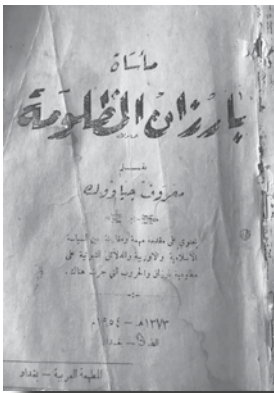 مأساة
بارزان المظلومة
بقلم
معروف جياووك
يحتوي على مقدمة مهمة ومقارنة بين السياسة
الاسلامية والاوربية والدلائل على
مظلومية بارزان والحروب التي جرت هناك.
١٣٧٣هـ - ١٩٥٤م
بغداد
المطبعة العربية - بغداد